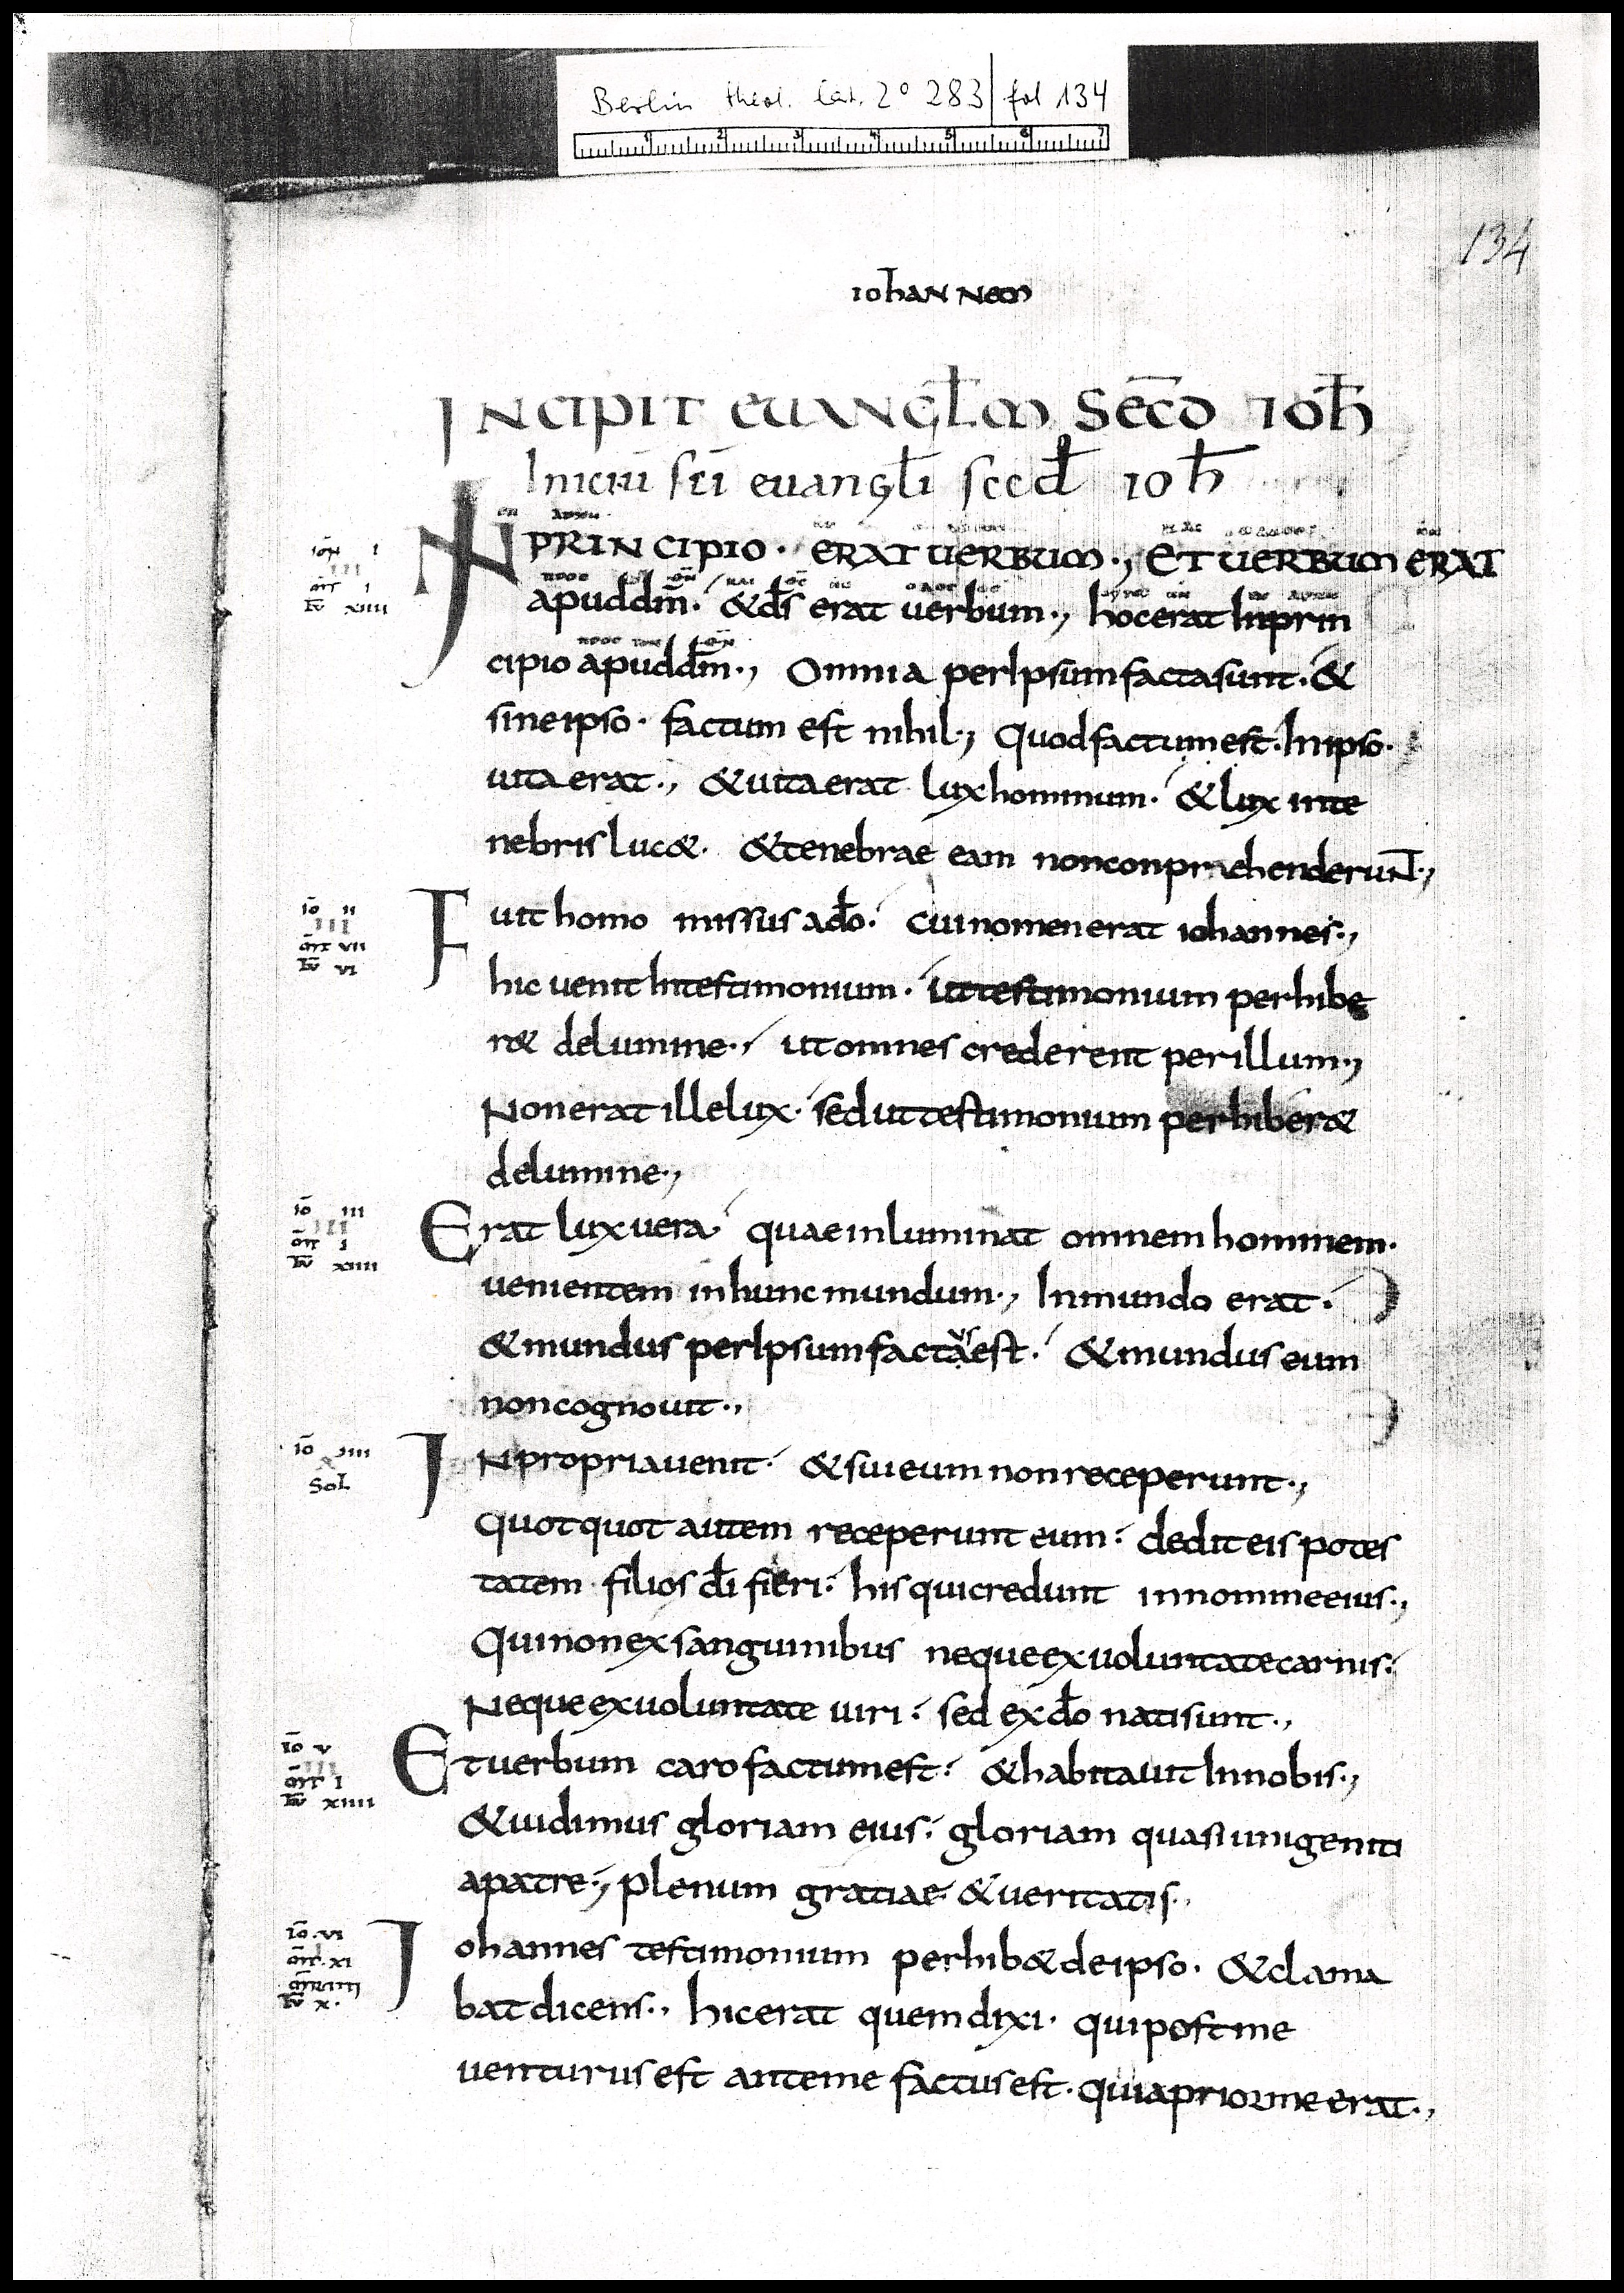 Berlin theol. lat. 2° 283 fol 134
1 2 3 4 5 6 7
134
iohannem
Incipit euangl̄m Sec̄d ioh̄
Iniciū sc̄i euangl̄i sccd̄ ioh̄
IN PRINCIPIO· ERAT UERBUM·, ET UERBUM ERAT
apud dm̄· & ds̄ erat uerbum·, hoc erat In prin
cipio apud dm̄·, Omnia per Ipsum facta sunt· &
sine ipso· factum est nihil·, Quod factum est· In ipso·
uita erat·, & uita erat lux hominum· & lux in te
nebris luc&· & tenebrae eam non conpraehenderunt·,
iō ii
iii
m̄t vii
lū vi
Fuit homo missus a dō· Cui nomen erat iohannes·,
hic uenit In testimonium· ut testimonium perhibe
r& de lumine·, ut omnes crederent per illum·,
Non erat ille lux· sed ut testimonium perhiber&
de lumine·,
iō iii
iii
m̄t i
lū xiiii
Erat lux uera· quae inluminat omnem hominem·
uenientem in hunc mundum·, In mundo erat·
& mundus per Ipsum factaus est· & mundus eum
non cognouit·,
iō iiii
x
Sol
IN propria uenit· & sui eum non receperunt·,
Quotquot autem receperunt eum· dedit eis potes
tatem filios dī fieri· his qui credunt in nomine eius·,
Qui non ex sanguinibus neque ex uoluntate carnis·
Neque ex uoluntate uiri· sed ex dō nati sunt·,
iō v
iii
m̄t i
lū xiiii
Et uerbum caro factum est· & habitauit In nobis·,
& uidimus gloriam eius· gloriam quasi unigeniti
a patre·, plenum gratiae & ueritatis·,
iō·vi
m̄t·xi
lū x·
Iohannes testimonium perhib& de ipso· & clama
bat dicens·, hic erat quem dixi· qui post me
uenturus est ante me factus est· quia prior me erat·,